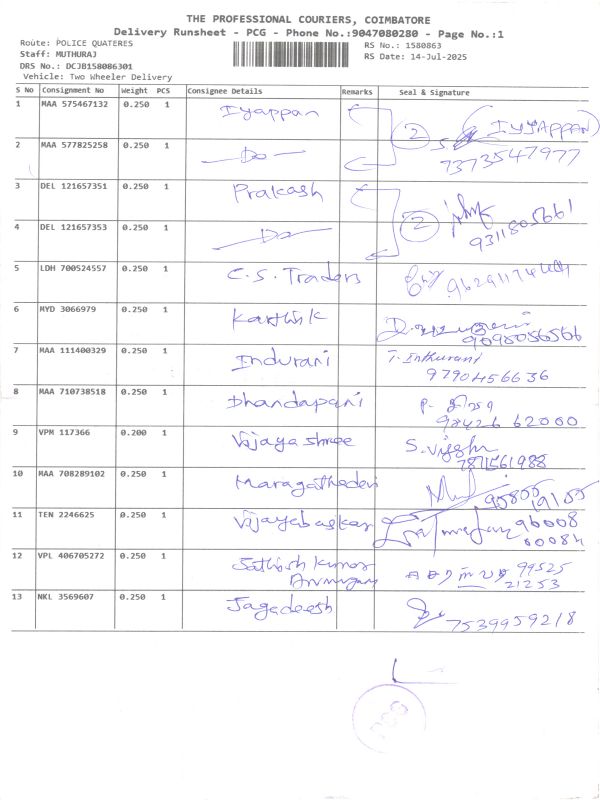 THE PROFESSIONAL COURIERS, COIMBATORE
Delivery Runsheet - PCG - Phone No.:9047080280 - Page No.:1
Route: POLICE QUATERES
RS No.: 1580863
Staff: MUTHURAJ
RS Date: 14-Jul-2025
DRS No.: DCJB158086301
Vehicle: Two Wheeler Delivery
S No Consignment No Weight PCS Consignee Details Remarks Seal & Signature
1 MAA 575467132 0.250 1 Iyappan 2 IYYAPPAN
2 MAA 577825258 0.250 1 Do 7373547977
3 DEL 121657351 0.250 1 Prakash 2
4 DEL 121657353 0.250 1 Do 9311805661
5 LDH 700524557 0.250 1 C.S. Traders
6 MYD 3066979 0.250 1 Karthik
7 MAA 111400329 0.250 1 Indurani T. Inthurani
9790456636
8 MAA 710738518 0.250 1 Dhandapani
98426 62000
9 VPM 117366 0.200 1 Vijayashree S. Vijshr
7871561988
10 MAA 708289102 0.250 1 Maragathedevi 95855 19155
11 TEN 2246625 0.250 1 Vijayabaskar 96008
60084
12 VPL 406705272 0.250 1 Sathish Kumar 99525
21253
13 NKL 3569607 0.250 1 Jagadeesh 7539959218